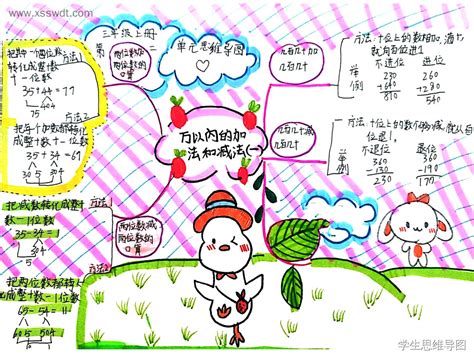 www.xsswdt.com
三年级上册
第一
单元思维导图
万以内的加
法和减法(一)
两位数加
两位数的
口算
方法1
把其中一个两位数
转化成整十数
十一位数
35+44=79
方法2
把每个加数都转化
成整十数+一位数
35+34=69
两位数减
两位数的
口算
方法1
把减数转化成整十
数一位数
35-34=
方法2
把两位数都转化
成整十数一位数
65-54=11
几百几十加
几百几十
方法:十位上的数相加,满十
就向百位进1
举例
不进位
进位
230
+640
870
260
+280
540
几百几十减
几百几十
举例
不退位
退位
360
-130
230
360
-190
170
学生思维导图